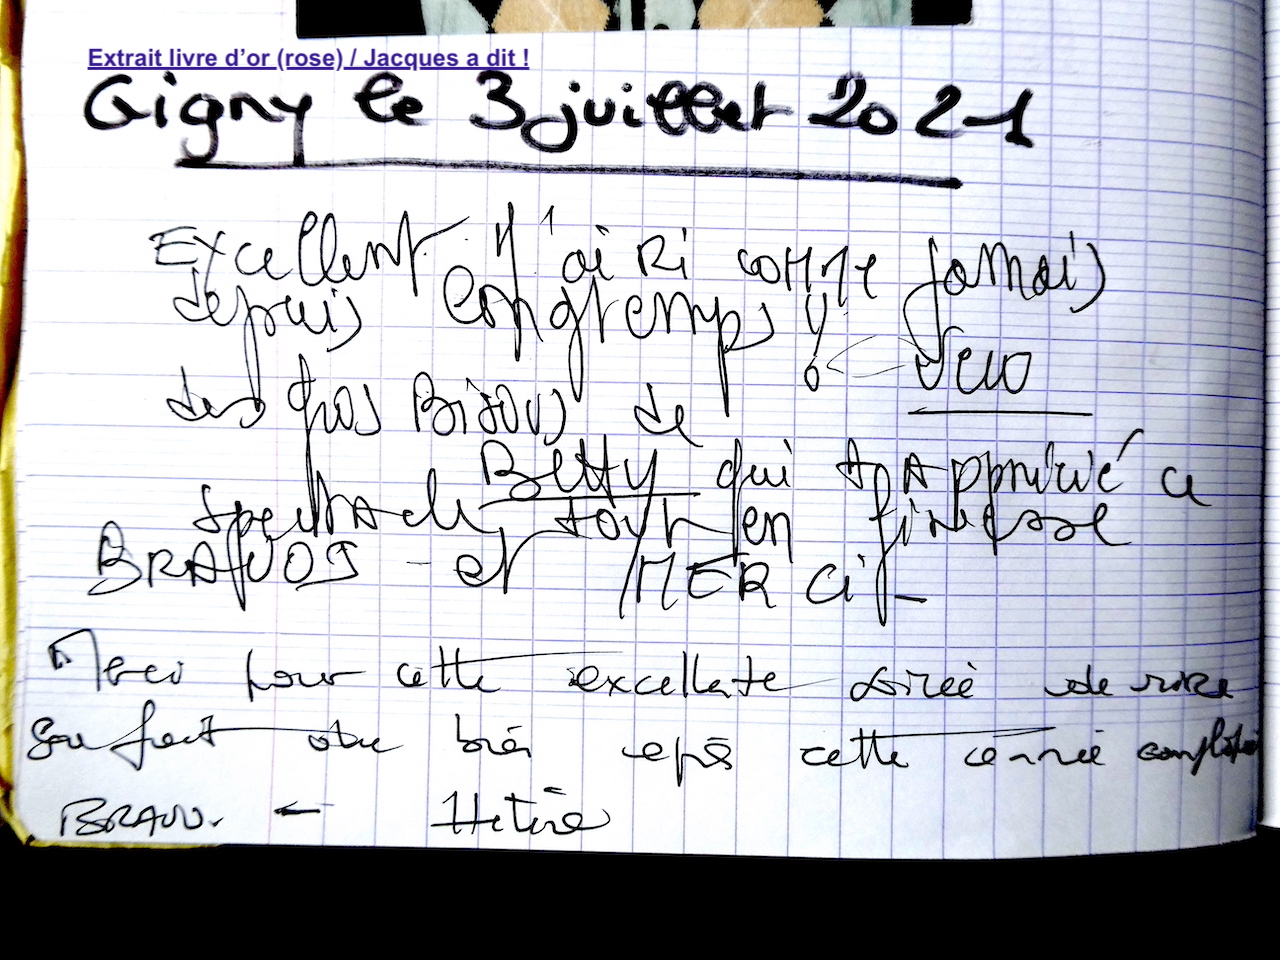 Extrait livre d'or (rose) / Jacques a dit !
Gigny le 3 juillet 2021
Excellent. J'ai Ri comme jamais
depuis longtemps !
des gros Bisous de
Betty qui a Apprécié ce
spectacle tout en finesse
BRAVOS - et MERCi -
Merci pour cette excellente soirée de rire
fait du bien après cette année
BRAVO. -